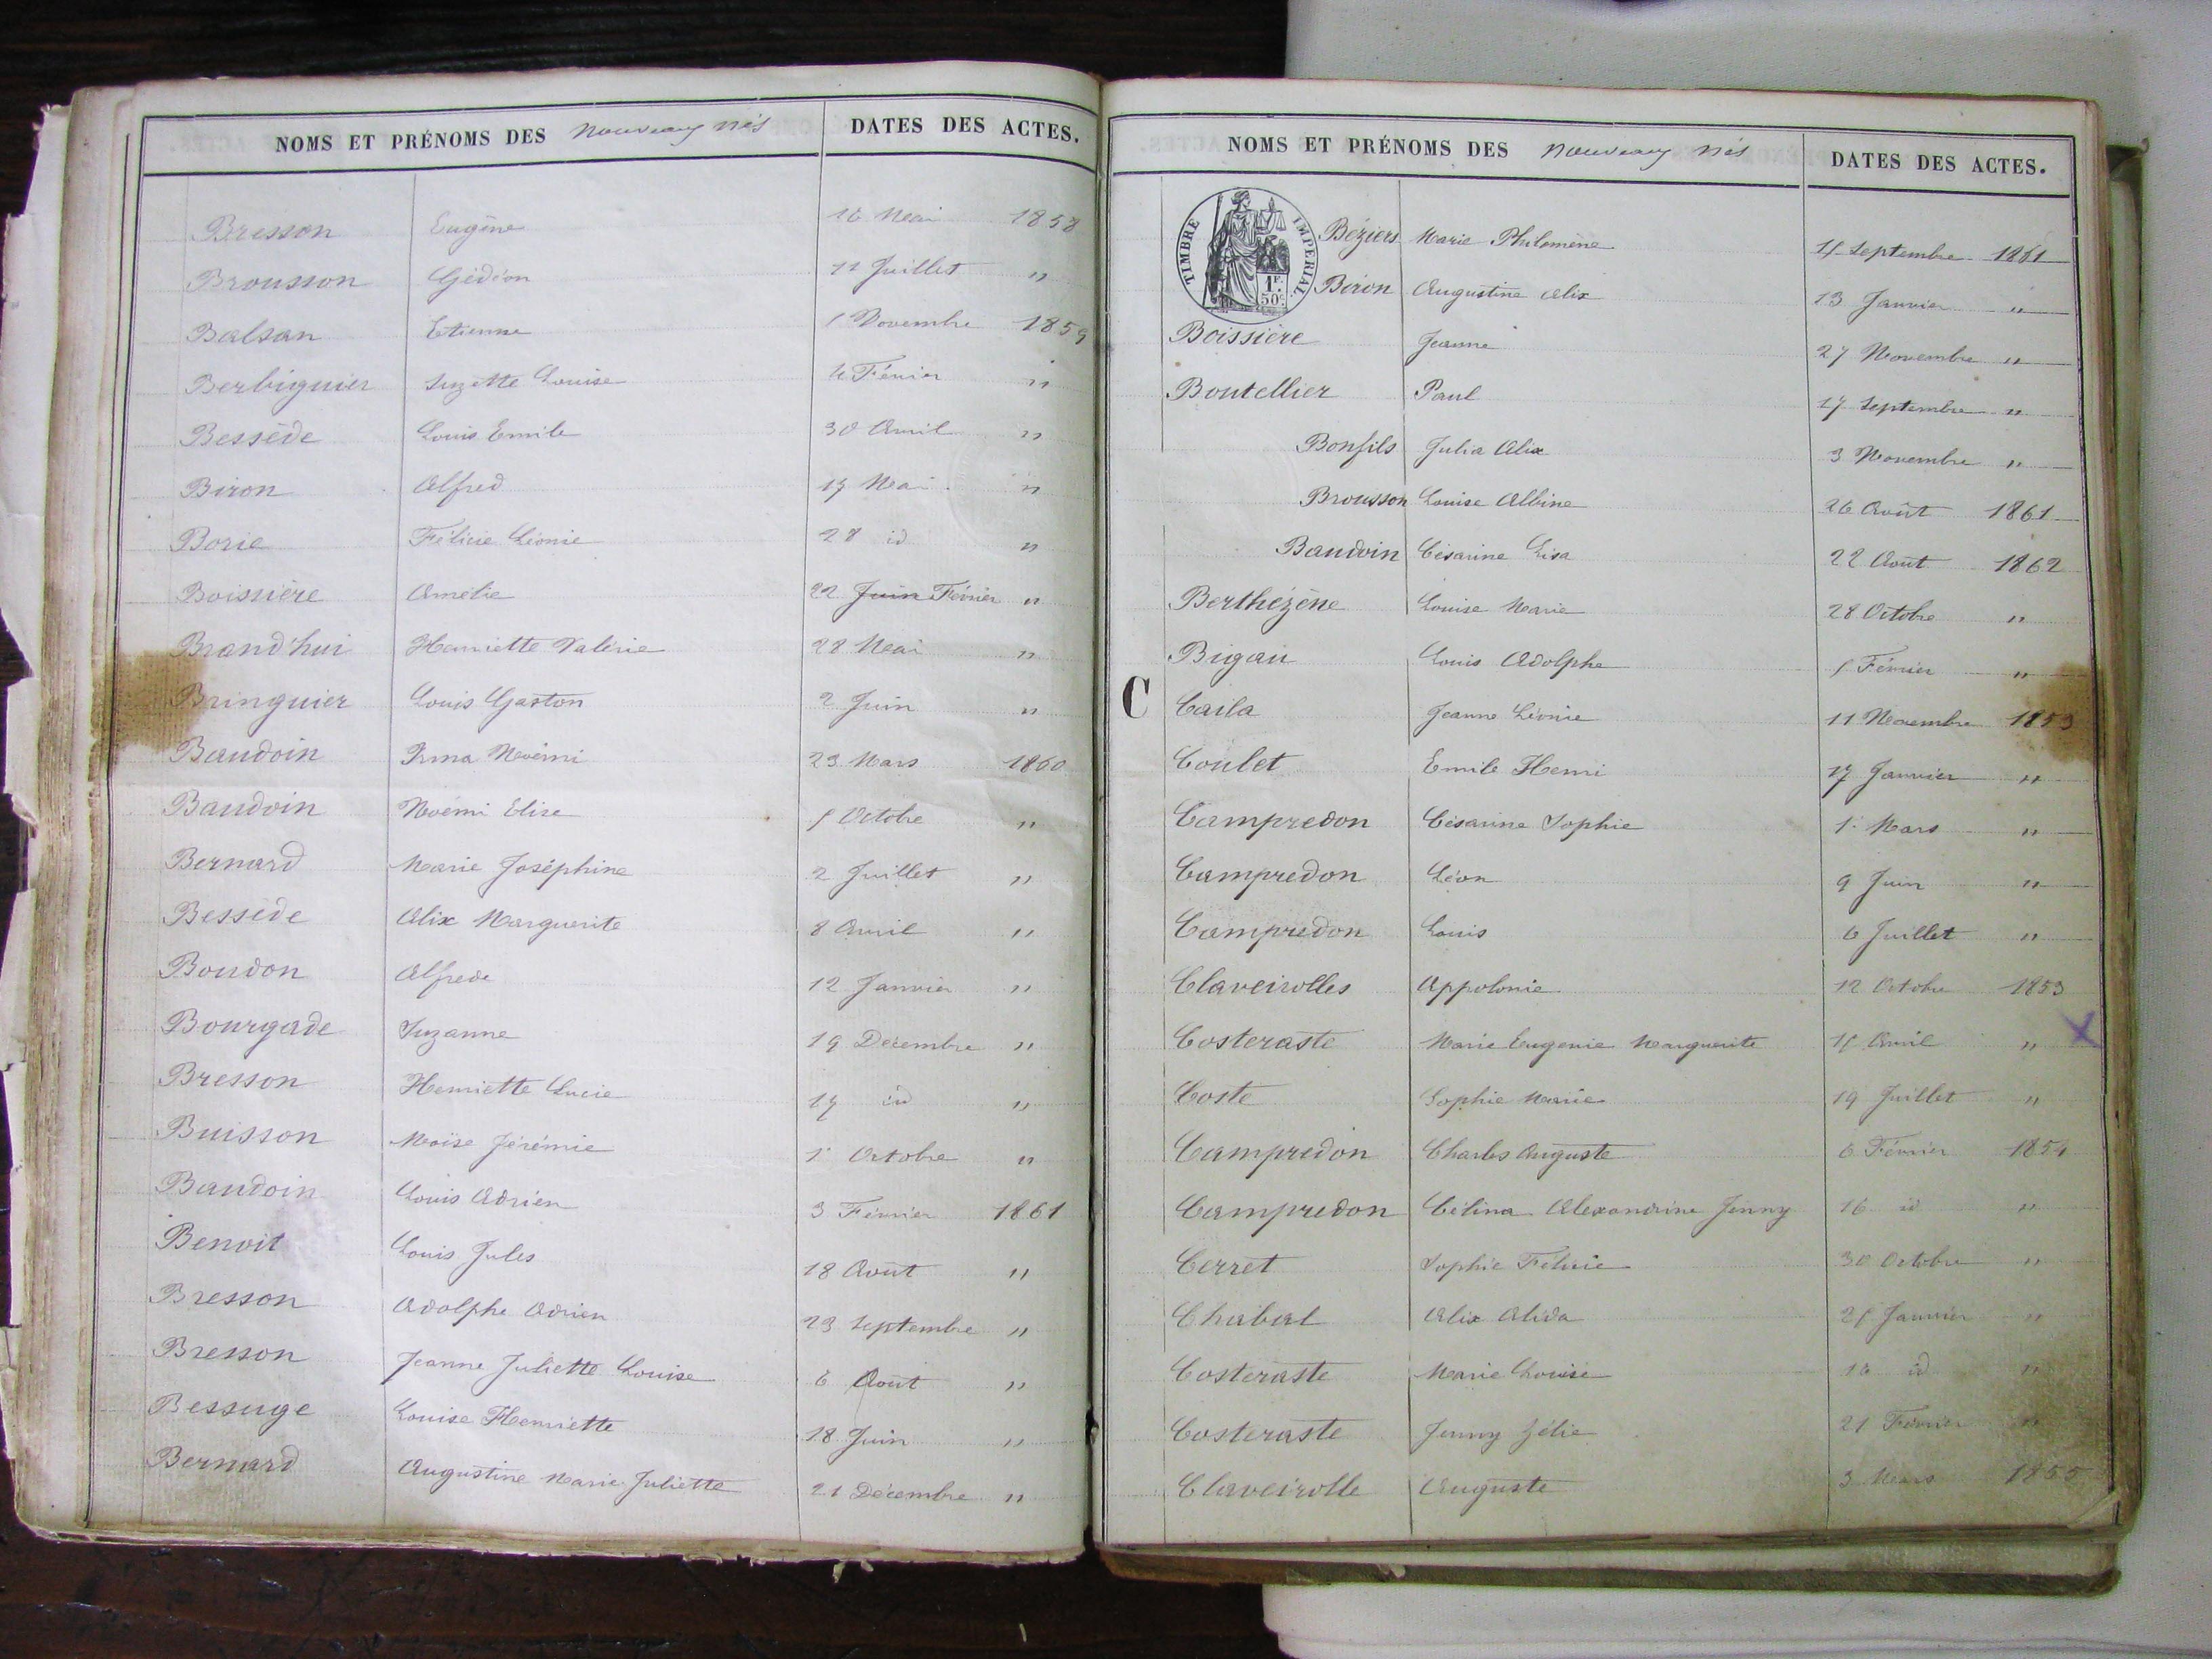 NOMS ET PRÉNOMS DES nouveaux nés DATES DES ACTES.
Bresson Eugène 16 Mai 1858
Brousson Gédéon 12 Juillet "
Balsan Etienne Novembre 1859
Berbiguier Suzette Louise 4 Février "
Bessède Louis Emile 30 Avril "
Biron Alfred 17 Mai "
Borie Félicie Léonie 28 id "
Boissière Amélie 22 Juin Février "
Brand'hui Henriette Valérie 28 Mai "
Bringuier Louis Gaston 2 Juin "
Baudoin Irma Noémi 23 Mars 1860
Baudoin Noémi Elise Octobre "
Bernard Marie Joséphine 2 Juillet "
Bessède Alix Marguerite 8 Avril "
Boudon Alfred 12 Janvier "
Bourgade Suzanne 19 Décembre "
Bresson Henriette Lucie 17 id "
Buisson Moïse Jérémie 1er Octobre "
Baudoin Louis Adrien 3 Février 1861
Benoit Louis Jules 18 Août "
Bresson Adolphe Adrien 23 Septembre "
Bresson Jeanne Juliette Louise 6 Août "
Bessuge Louise Henriette 18 Juin "
Bernard Augustine Marie Juliette 21 Décembre "
NOMS ET PRÉNOMS DES nouveaux nés DATES DES ACTES.
TIMBRE IMPERIAL 1F. 50c.
Béziers Marie Philomène Septembre 1861
Biron Augustine Alix 13 Janvier "
Boissière Jeanne 27 Novembre "
Boutellier Paul 17 Septembre "
Bonfils Julia Alix 3 Novembre "
Brousson Louise Albine 26 Août 1861
Baudoin Césarine Lisa 22 Août 1862
Berthézène Louise Marie 28 Octobre "
Bigau Louis Adolphe Février "
C
Caila Jeanne Léonie 11 Novembre 1853
Coulet Emile Henri 17 Janvier "
Campredon Césarine Sophie 1er Mars "
Campredon Léon 9 Juin "
Campredon Louis 6 Juillet "
Claveirolles Appolonie 12 Octobre 1853
Costeraste Marie Eugenie Marguerite Avril " X
Coste Sophie Marie 19 Juillet "
Campredon Charles Auguste 6 Février 1854
Campredon Célina Alexandrine Jenny 16 id "
Cerret Sophie Félicie 30 Octobre "
Chabal Alix Alida Janvier "
Costeraste Marie Louise 16 id "
Costeraste Jenny Zélie 21 Février "
Claveirolle Auguste 3 Mars 1855